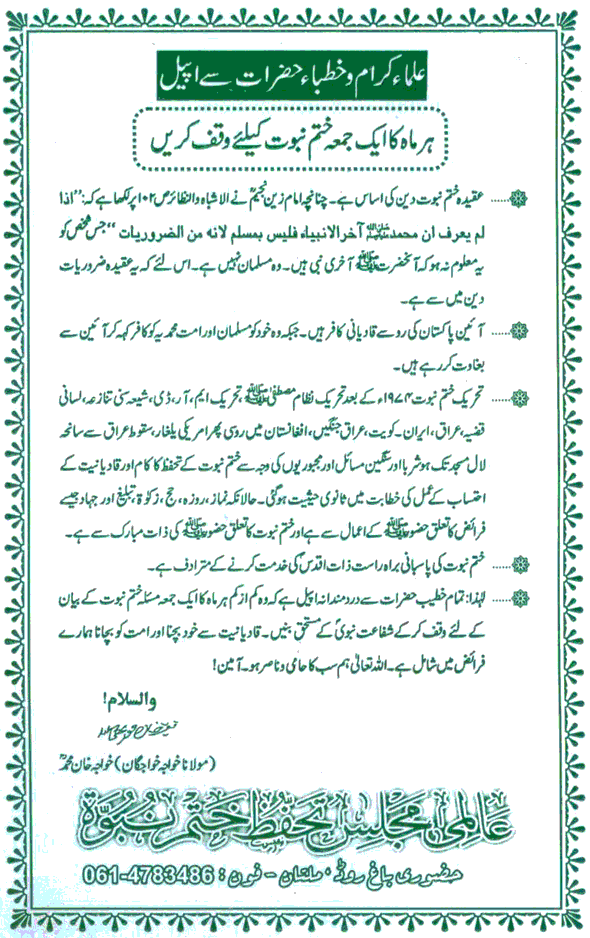 علماء کرام و خطباء حضرات سے اپیل
ہر ماہ کا ایک جمعہ ختم نبوت کیلئے وقف کریں
عقیدہ ختم نبوت دین کی اساس ہے۔ چنانچہ امام زین نجیمؒ نے الاشباہ والنظائر ص ۱۰۲ پر لکھا ہے کہ: "اذا
لم یعرف ان محمدﷺ آخر الانبیاء فلیس بمسلم لانه من الضروریات" جس شخص کو
یہ معلوم نہ ہو کہ آنحضرتﷺ آخری نبی ہیں۔ وہ مسلمان نہیں ہے۔ اس لئے کہ یہ عقیدہ ضروریات
دین میں سے ہے۔
آئین پاکستان کی رو سے قادیانی کافر ہیں۔ جبکہ وہ خود کو مسلمان اور امت محمدیہ کو کافر کہہ کر آئین سے
بغاوت کر رہے ہیں۔
تحریک ختم نبوت ۱۹۷۴ء کے بعد تحریک نظام مصطفیٰﷺ، تحریک ایم، آر، ڈی، شیعہ سنی تنازعہ، لسانی
قضیہ، عراق، ایران۔ کویت، عراق جنگیں، افغانستان میں روسی پھر امریکی یلغار، سقوط عراق سے سانحہ
لال مسجد تک ہوشربا اور سنگین مسائل اور مجبوریوں کی وجہ سے ختم نبوت کے تحفظ کا کام اور قادیانیت کے
احتساب کے عمل کی خطابت میں ثانوی حیثیت ہو گئی۔ حالانکہ نماز، روزہ، حج، زکوٰة تبلیغ اور جہاد جیسے
فرائض کا تعلق حضورﷺ کے اعمال سے ہے اور ختم نبوت کا تعلق حضورﷺ کی ذات مبارک سے ہے۔
ختم نبوت کی پاسبانی براہ راست ذات اقدسؐ کی خدمت کرنے کے مترادف ہے۔
لہٰذا: تمام خطیب حضرات سے دردمندانہ اپیل ہے کہ وہ کم از کم ہر ماہ کا ایک جمعہ مسئلہ ختم نبوت کے بیان
کے لئے وقف کر کے شفاعت نبویؐ کے مستحق بنیں۔ قادیانیت سے خود بچنا اور امت کو بچانا ہمارے
فرائض میں شامل ہے۔ اللہ تعالیٰ ہم سب کا حامی و ناصر ہو۔ آمین!
والسلام!
(مولانا خواجہ خواجگان) خواجہ خان محمدؒ
عالمی مجلس تحفظ ختم نبوة
حضوری باغ روڈ، ملتان - فون: 061-4783486